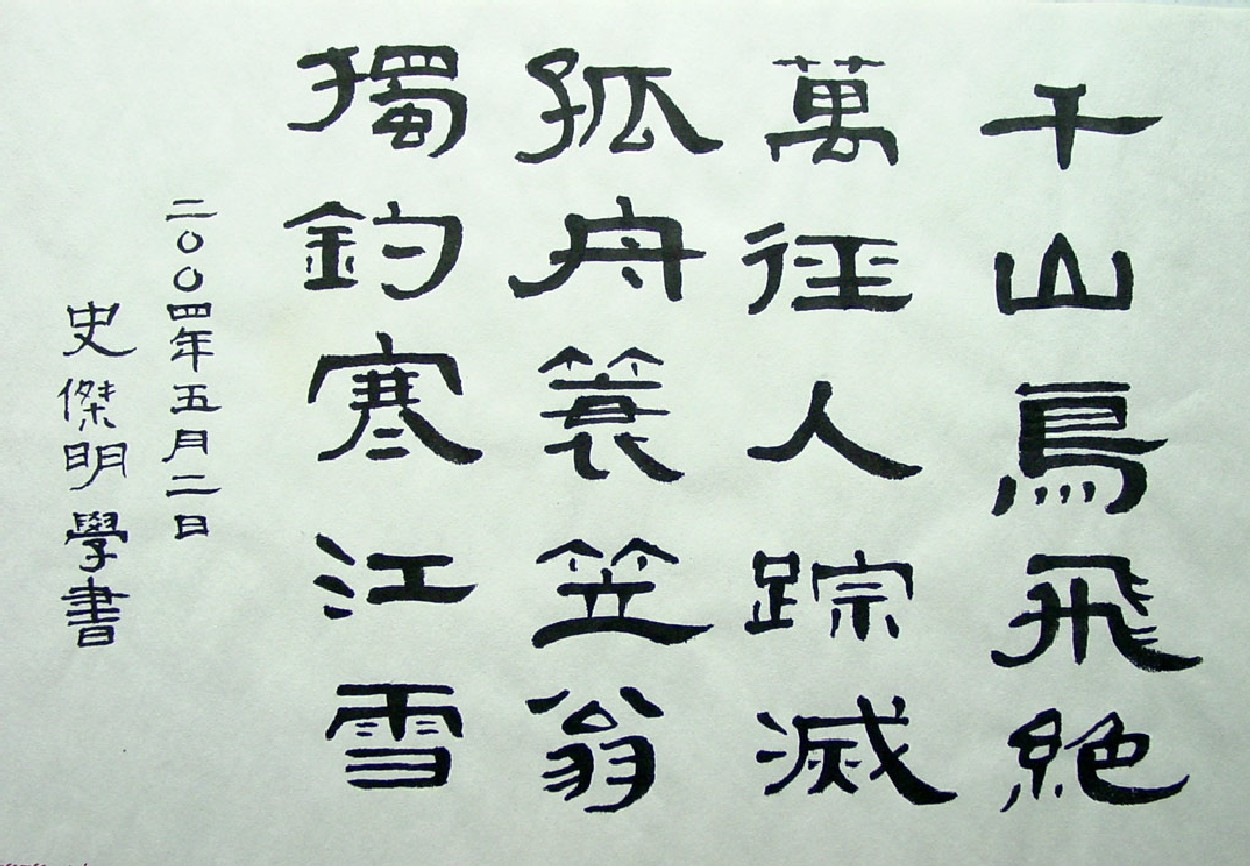 千山鳥飛絶
萬徑人踪滅
孤舟簑笠翁
獨釣寒江雪
二〇〇四年五月二日
史傑明學書